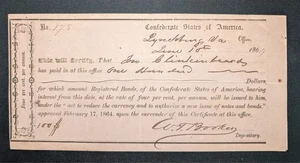 No. 178
Confederate States of America.
Lynchburg Va. Office,
June 10th 1864
This will Certify, That
has paid in at this office One Hundred
Dollars,
for which amount Registered Bonds, of the Confederate States of America, bearing
interest from this date, at the rate of four per cent. per annum, will be issued to him,
under the "act to reduce the currency and to authorize a new issue of notes and bonds,"
approved February 17, 1864, upon the surrender of this Certificate at this office.
100
Depositary.
Four per cent. per annum.